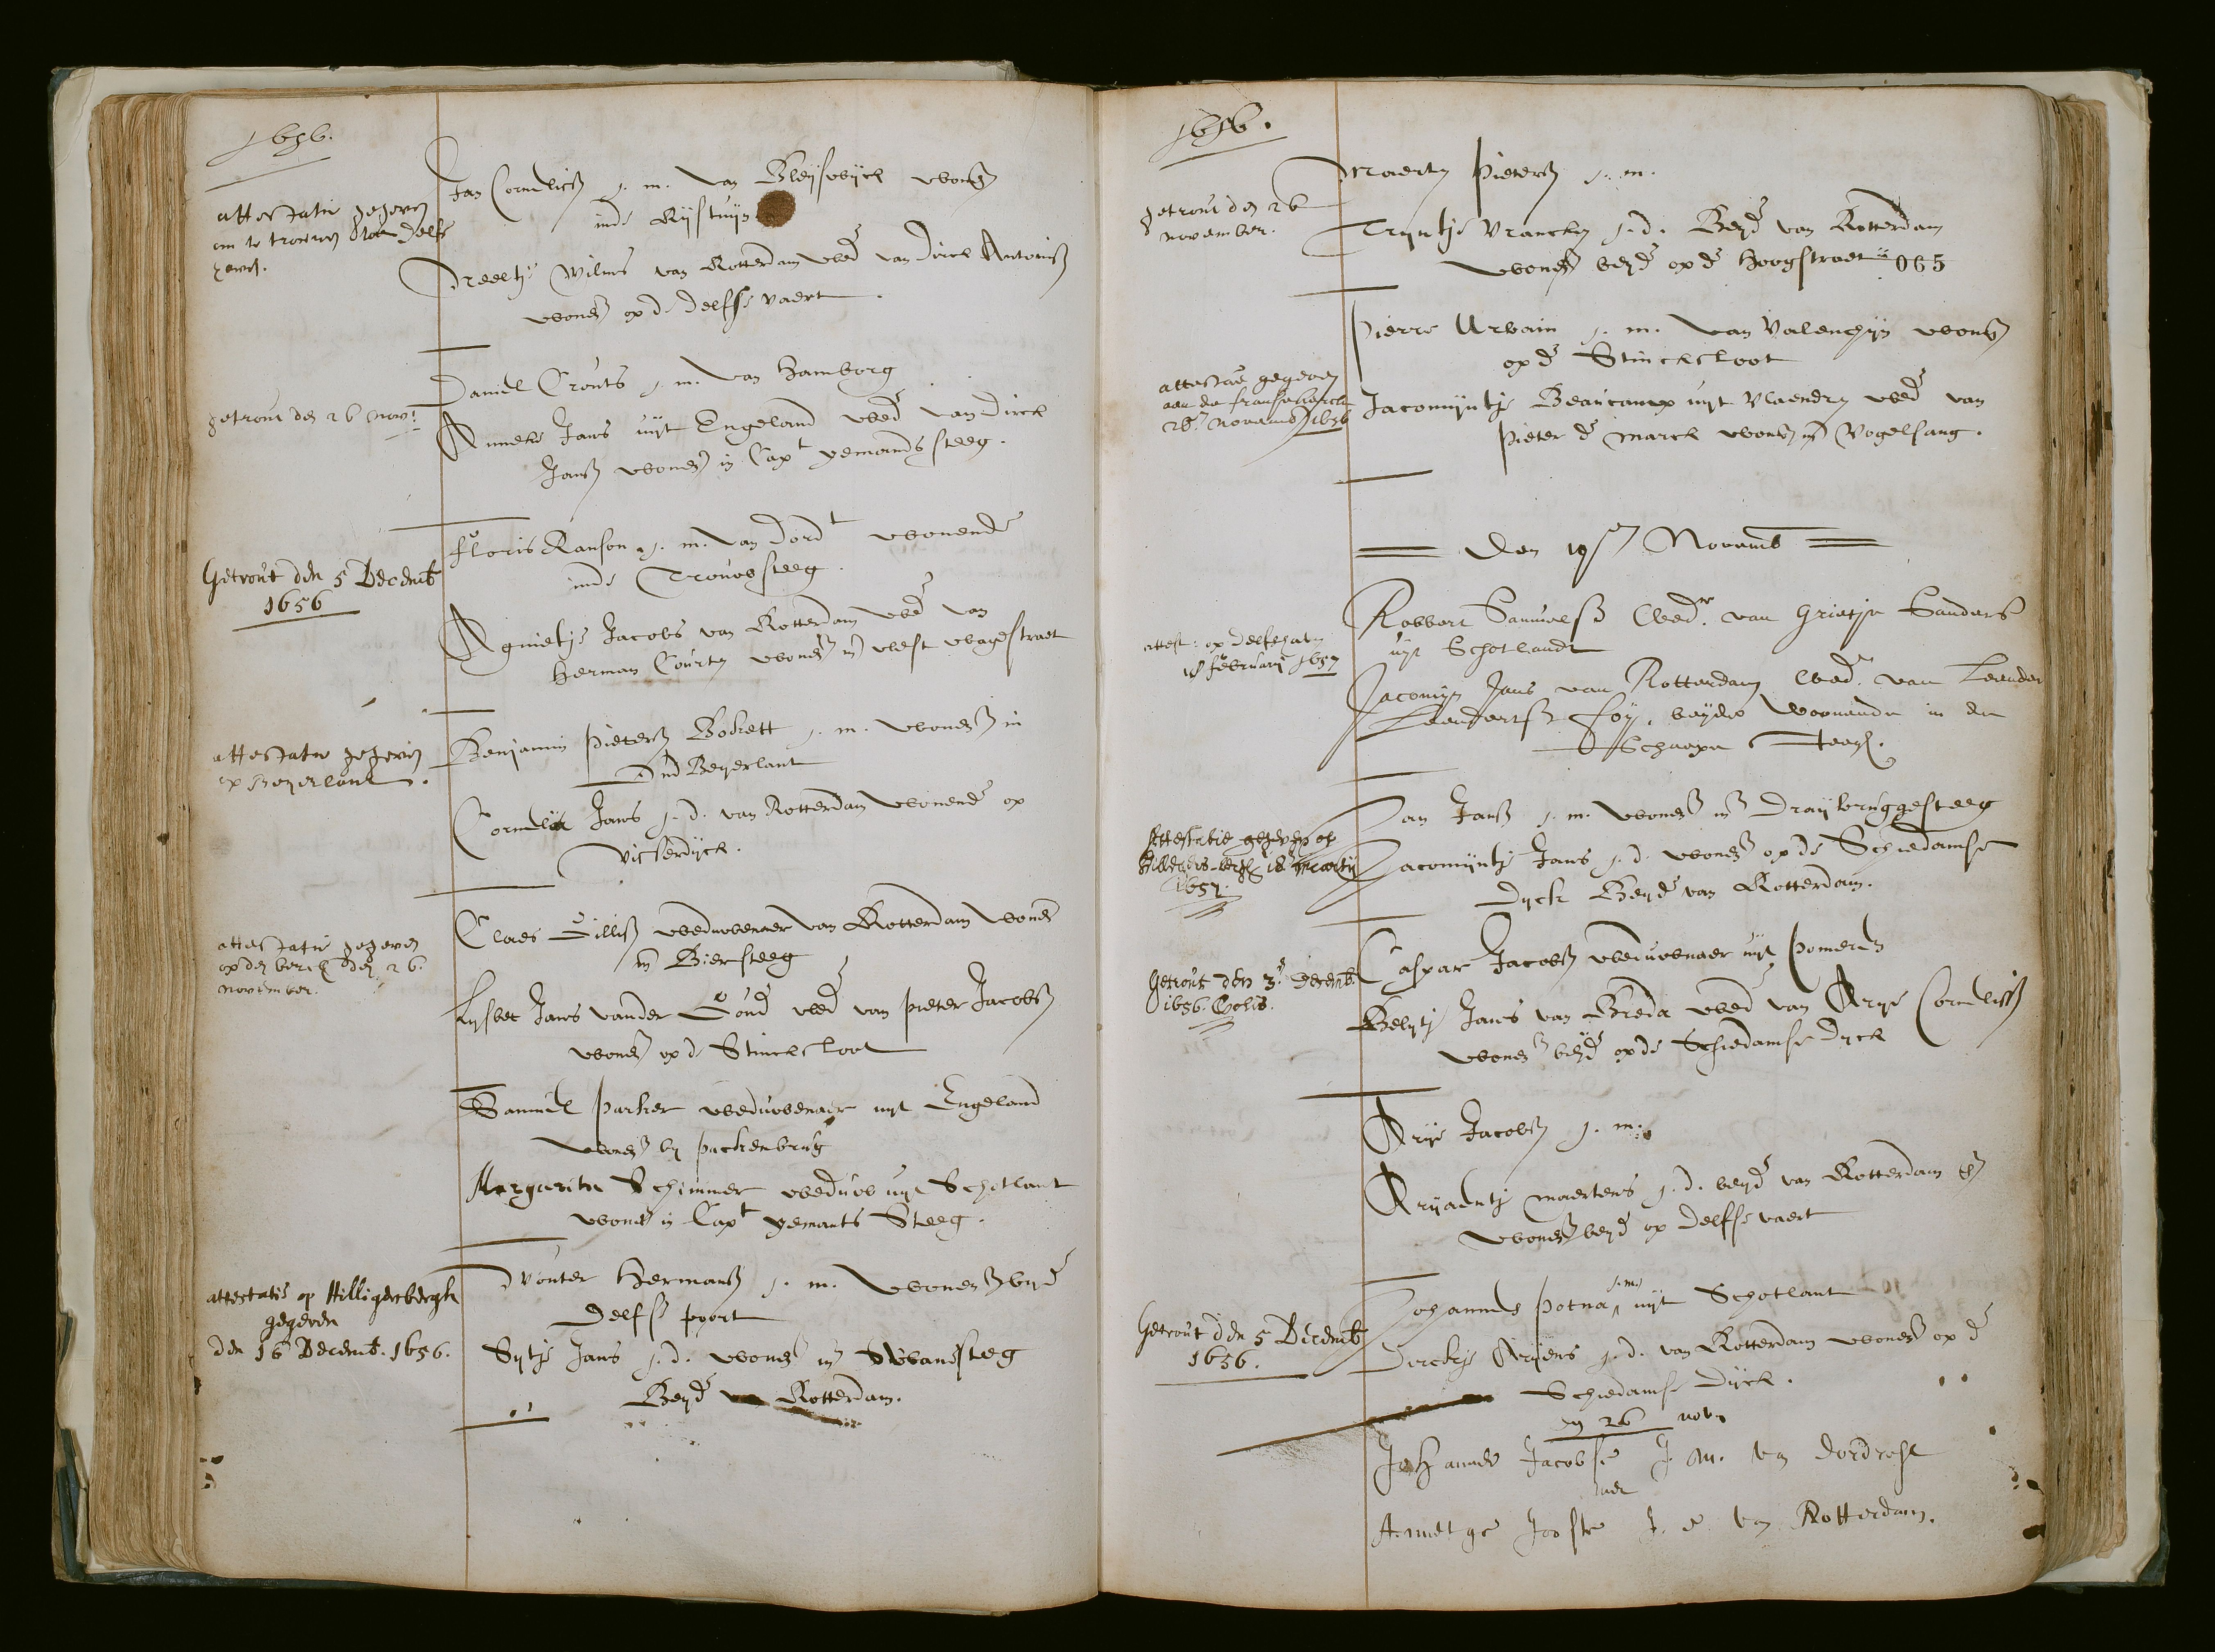 1656.
attestatie gegeven
om te trouwen Delfs
haven.
Jan Corneliss j. m. van Bleijswijck wonend
inde Rijstuijn
Neeltje Willms van Rotterdam wed van Dirck Antoniss
wonend op d delffse vaert.
getrout den 26 Nov:
Daniel Crouts j. m. van Hamborg
Anneke Jans uijt Engeland wed van Dirck
Janss wonend in Capt yemands steeg.
Getrout den 5 Decemb
1656
Floris Ranson j. m. van Dordt wonende
inde Trouwsteeg.
Agnietje Jacobs van Rotterdam wed van
Herman Courten wonend in west wagestraet
attestatie gegeven
op Beyerlant.
Benjamin Pieterss Bokett j. m. wonend in
Oud Beyerlant
Cornelia Jans j. d. van Rotterdam wonende op
Visserdyck.
attestatie gegeven
op den berch den 26.
november.
Claes Gilliss weduwenaer van Rotterdam wonend
in Biersteeg
Lysbet Jans vander Goude wed van Pieter Jacobss
wonend op d Stincksloot
Samuel Parker weduwenaer uyt Engeland
wonend by packenbrug
Margarita Schimmer weduwe uyt Schotlant
wonend in Capt yemants Steeg.
attestatie op Hilligersbergh
gegeven
den 16 Decemb. 1656.
Wouter Hermanss j. m. wonend by d
Delfss poort
Sytje Jans j. d. wonend in Swanesteeg
Beyd van Rotterdam.
1656.
getrout den 26
november.
Maerten Pieterss j. m.
Tryntje Vrancken j. d. Beyd van Rotterdam
wonend beyd op de Hoogstraet
065
attestatie gegeven
aen de franse kerck
26 novemb 1656
Pierre Urbain j. m. van Valencyn wonend
op de Stincksloot
Jacomyntje Beaucamp uyt Vlaendren wed van
Pieter de Marck wonend in Vogelsang.
Den 19en Novemb
attest: op delfshaven
18 february 1657
Robbert Samuelss Wedr. van Grietje Sanders
uyt Schotlandt
Jacomyn Jans van Rotterdam Wed. van Leender
Leendertss Foy, beyde woonende in de
Schaepe Steegh.
Attestatie gegeven op
Hillegers-bergh 18 Martij
1657.
Jan Janss j. m. wonend in Draybruggesteeg
Jacomyntje Jans j. d. wonend op de Schiedamse
Dyck Beyd van Rotterdam.
Getrout den 3e Decemb.
1656.
Caspar Jacobss weduwenaer uyt Pomeren
Belytje Jans van Breda wed van Arye Corneliss
wonend beyde op de Schiedamse Dyck
Arije Jacobss j. m.
Aryaentje Maertens j. d. beyd van Rotterdam
wonend beyd op Delfse vaert
Getrout den 5 Decemb
1656.
Johannes Potna j. m. uyt Schotlant
Dirckje Aryens j. d. van Rotterdam wonend op d
Schiedamse Dyck.
den 26 nov.
Johannes Jacobse J. M. van Dordrecht
met
Annetge Joosten J. d van Rotterdam.